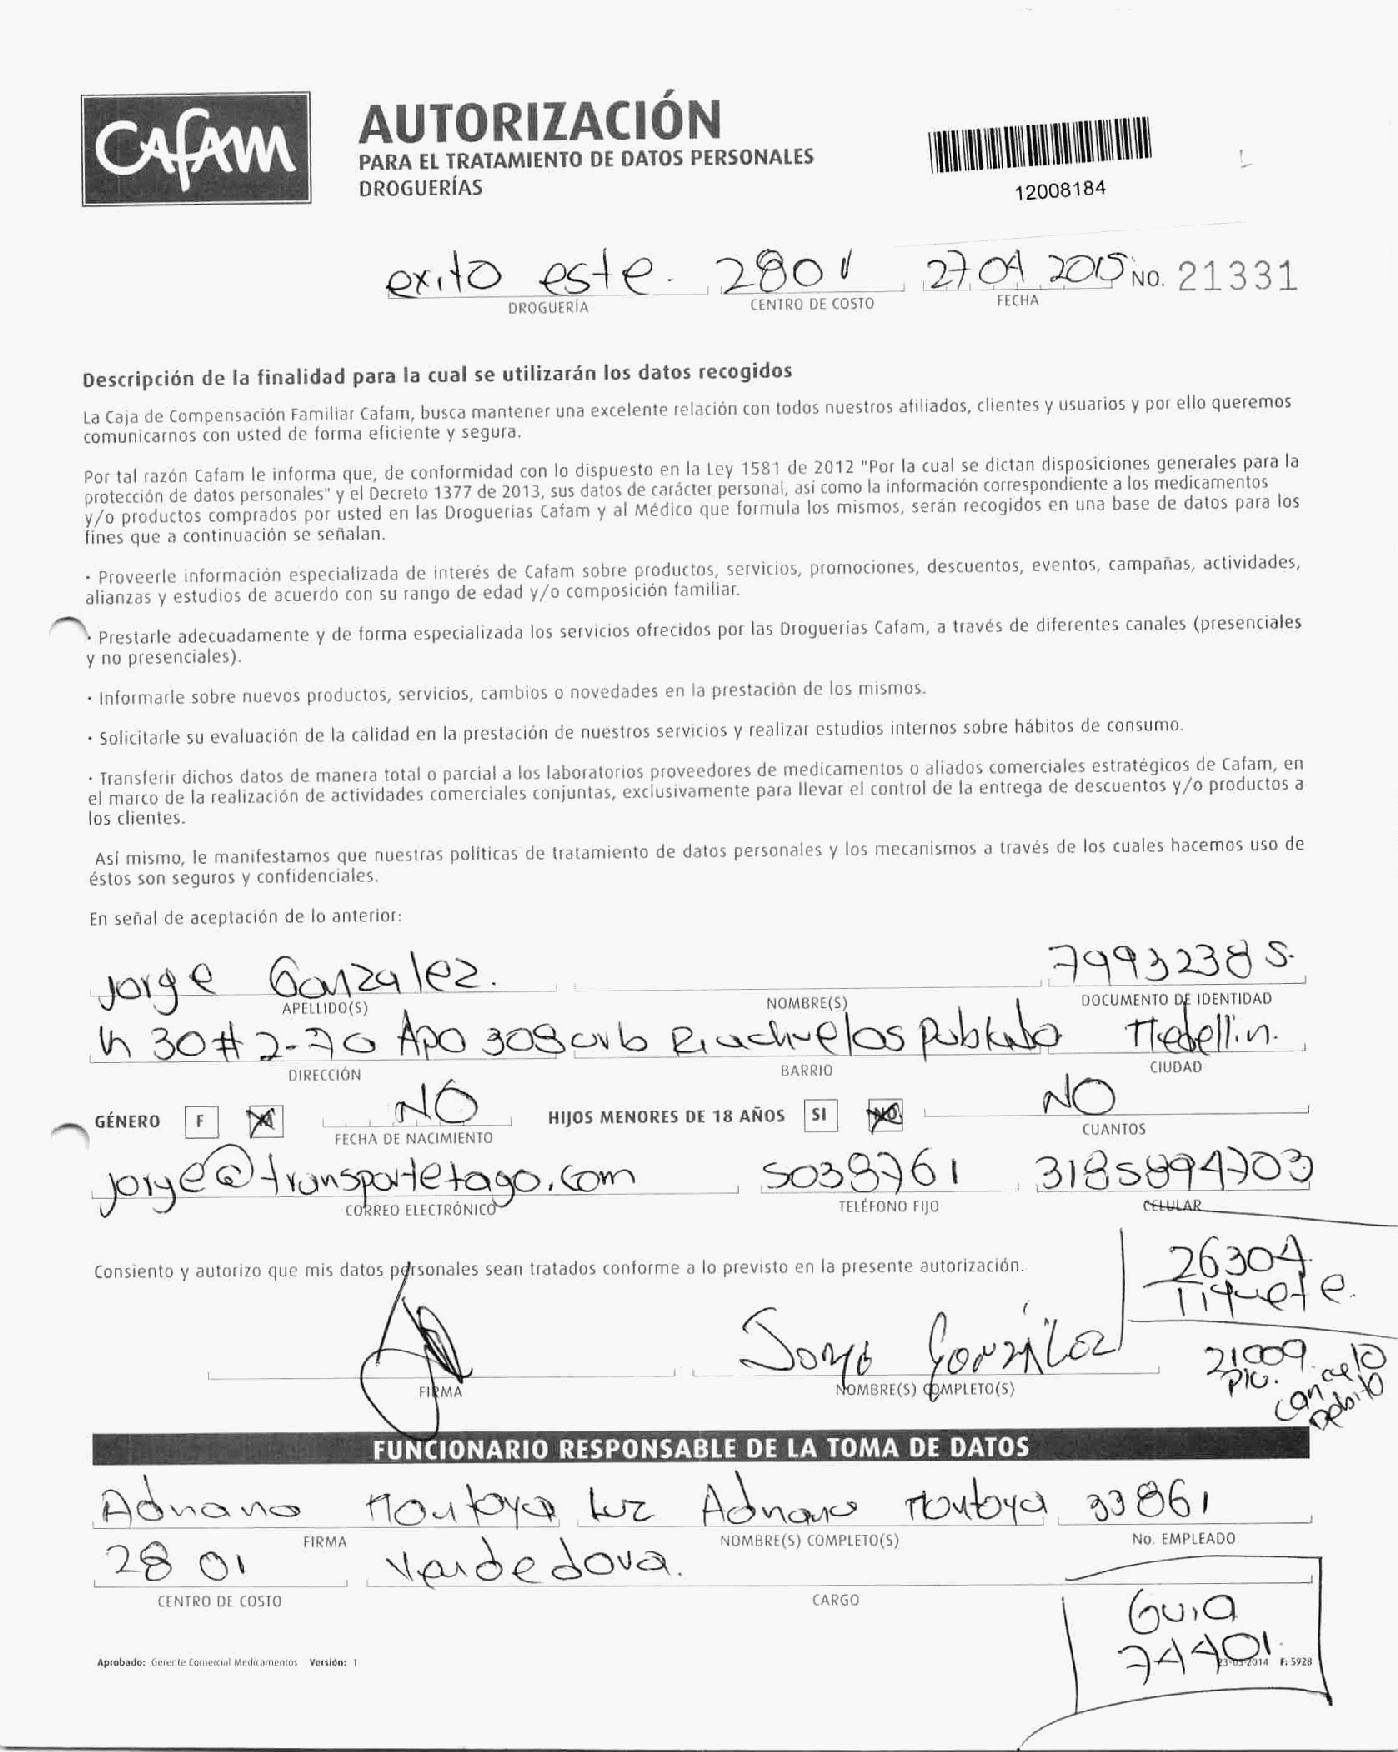 CAFAM
AUTORIZACIÓN
PARA EL TRATAMIENTO DE DATOS PERSONALES
DROGUERÍAS
12008184
exito este. 2801 27 04 2015 NO. 21331
DROGUERÍA CENTRO DE COSTO FECHA
Descripción de la finalidad para la cual se utilizarán los datos recogidos
La Caja de Compensación Familiar Cafam, busca mantener una excelente relación con todos nuestros afiliados, clientes y usuarios y por ello queremos
comunicarnos con usted de forma eficiente y segura.
Por tal razón Cafam le informa que, de conformidad con lo dispuesto en la Ley 1581 de 2012 "Por la cual se dictan disposiciones generales para la
protección de datos personales" y el Decreto 1377 de 2013, sus datos de carácter personal, así como la información correspondiente a los medicamentos
y/o productos comprados por usted en las Droguerías Cafam y al Médico que formula los mismos, serán recogidos en una base de datos para los
fines que a continuación se señalan.
· Proveerle información especializada de interés de Cafam sobre productos, servicios, promociones, descuentos, eventos, campañas, actividades,
alianzas y estudios de acuerdo con su rango de edad y/o composición familiar.
· Prestarle adecuadamente y de forma especializada los servicios ofrecidos por las Droguerías Cafam, a través de diferentes canales (presenciales
y no presenciales).
· Informarle sobre nuevos productos, servicios, cambios o novedades en la prestación de los mismos.
· Solicitarle su evaluación de la calidad en la prestación de nuestros servicios y realizar estudios internos sobre hábitos de consumo.
· Transferir dichos datos de manera total o parcial a los laboratorios proveedores de medicamentos o aliados comerciales estratégicos de Cafam, en
el marco de la realización de actividades comerciales conjuntas, exclusivamente para llevar el control de la entrega de descuentos y/o productos a
los clientes.
Así mismo, le manifestamos que nuestras políticas de tratamiento de datos personales y los mecanismos a través de los cuales hacemos uso de
éstos son seguros y confidenciales.
En señal de aceptación de lo anterior:
Jorge Gonzalez. 79932385.
APELLIDO(S) NOMBRE(S) DOCUMENTO DE IDENTIDAD
30# 2-70 Apo Medellin.
DIRECCIÓN BARRIO CIUDAD
GÉNERO F M NO HIJOS MENORES DE 18 AÑOS SI NO NO
FECHA DE NACIMIENTO CUANTOS
jorge@transportetago.com 5038761 3185894703
CORREO ELECTRÓNICO TELÉFONO FIJO CELULAR
Consiento y autorizo que mis datos personales sean tratados conforme a lo previsto en la presente autorización.
26304
Tiquete.
Jorge González
21009.
PIC. cancelo
Debito
FIRMA NOMBRE(S) COMPLETO(S)
FUNCIONARIO RESPONSABLE DE LA TOMA DE DATOS
Adriana Montoya Luz Adriana Montoya 33861
FIRMA NOMBRE(S) COMPLETO(S) No. EMPLEADO
28 01 Vendedora.
CENTRO DE COSTO CARGO
Guia
74401
Aprobado: Gerente Comercial Medicamentos Versión: 1 23-05-2014 F: 5928